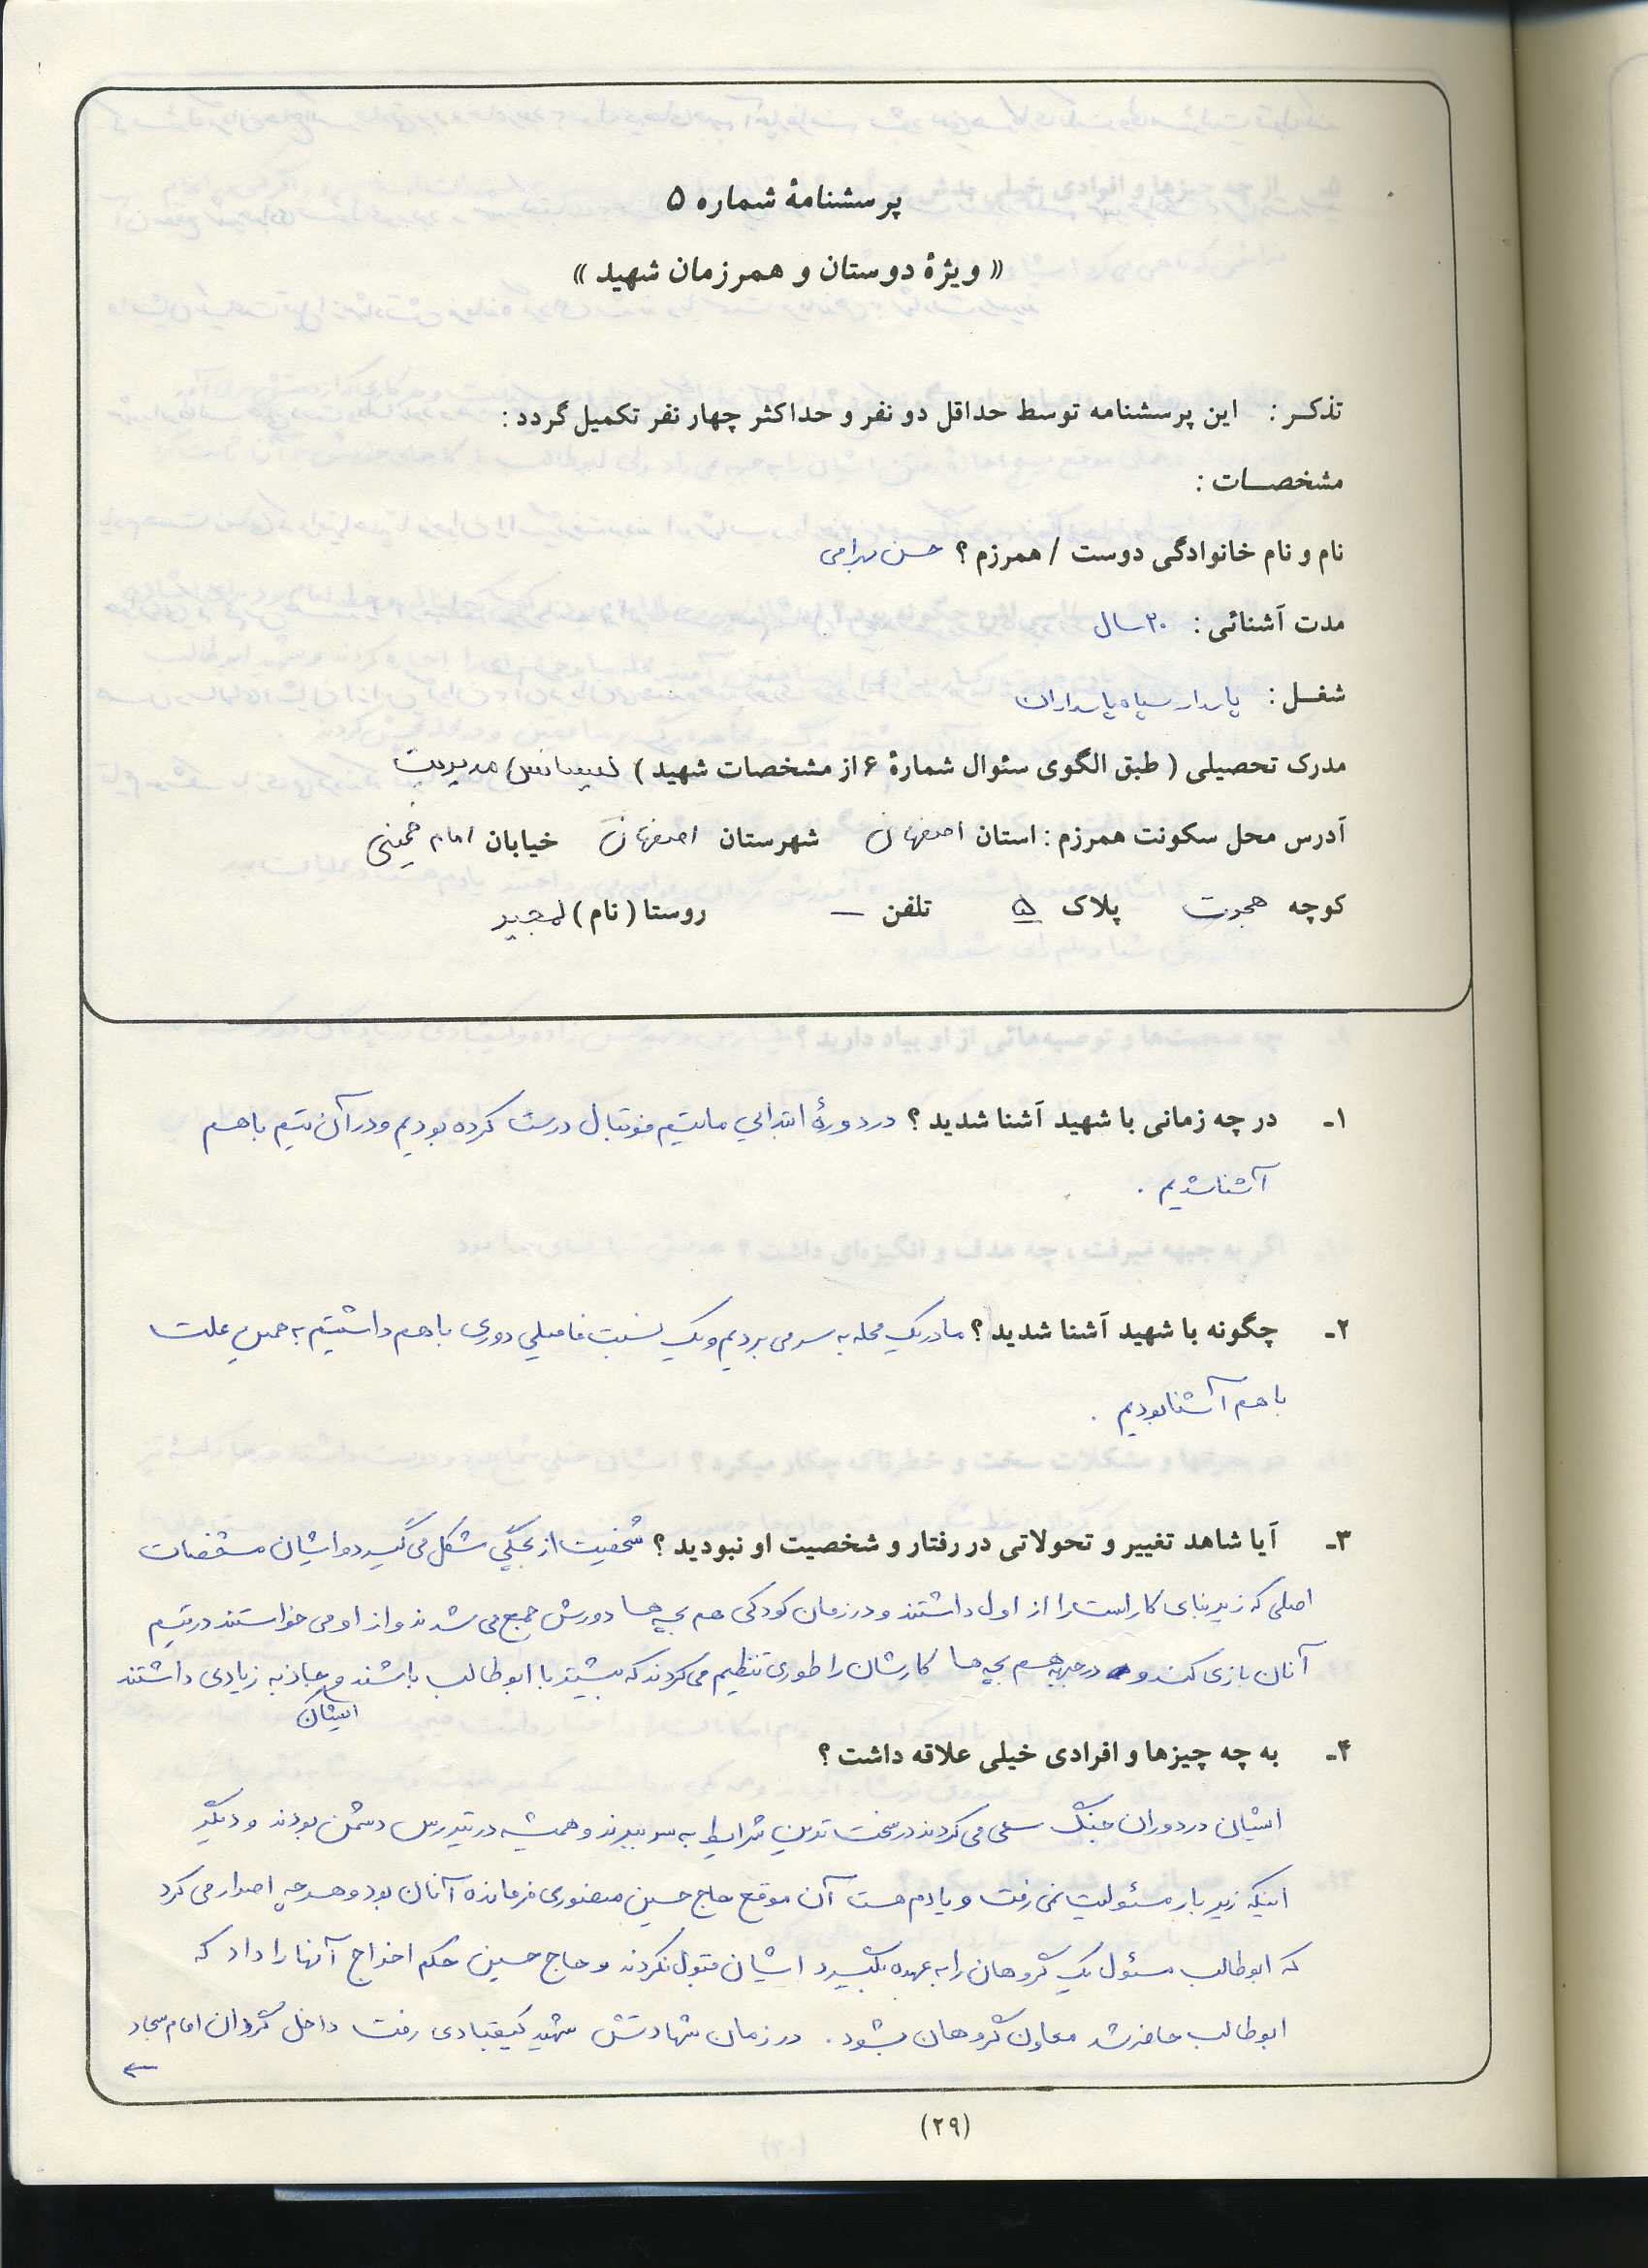 پرسشنامهٔ شماره ۵
« ویژهٔ دوستان و همرزمان شهید »
تذکـر : این پرسشنامه توسط حداقل دو نفر و حداکثر چهار نفر تکمیل گردد :
مشخصـات :
نام و نام خانوادگی دوست / همرزم ؟ حسن بهرامی
مدت آشنائی : ۲۰ سال
شغـل : پاسدار سپاه پاسداران
مدرک تحصیلی ( طبق الگوی سئوال شمارهٔ ۶ از مشخصات شهید ) لیسانس مدیریت
آدرس محل سکونت همرزم : استان اصفهان شهرستان اصفهان خیابان امام خمینی
کوچه هجرت پلاک ۵ تلفن — روستا ( نام ) لمجیر
۱ـ در چه زمانی با شهید آشنا شدید ؟ در دورهٔ ابتدایی ما تیم فوتبال درست کرده بودیم و در آن تیم با هم
آشنا شدیم .
۲ـ چگونه با شهید آشنا شدید ؟ ما در یک محله به سر می بردیم و یک نسبت فامیلی دوری با هم داشتیم به همین علت
با هم آشنا بودیم .
۳ـ آیا شاهد تغییر و تحولاتی در رفتار و شخصیت او نبودید ؟ شخصیت از بچگی شکل می گیرد و ایشان مشخصات
اصلی که زیربنای کار است را از اول داشتند و در زمان کودکی هم بچه ها دورش جمع می شدند و از او می خواستند در تیم
آنان بازی کند و در جبهه هم بچه ها کارشان را طوری تنظیم می کردند که بیشتر با ابوطالب باشند و ایشان جاذبه زیادی داشتند
۴ـ به چه چیزها و افرادی خیلی علاقه داشت ؟
ایشان در دوران جنگ سعی می کردند در سخت ترین شرایط به سر ببرند و همیشه در تیررس دشمن بودند و دیگر
اینکه زیر بار مسئولیت نمی رفت و یادم هست آن موقع حاج حسین منصوری فرمانده آنان بود و هر چه اصرار می کرد
که ابوطالب مسئول یک گروهان را به عهده بگیرد ایشان قبول نکردند و حاج حسین حکم اخراج آنها را داد که
ابوطالب حاضر شد معاون گروهان بشود . در زمان شهادتش شهید کیقبادی رفت داخل گردان امام سجاد
←
(۲۹)